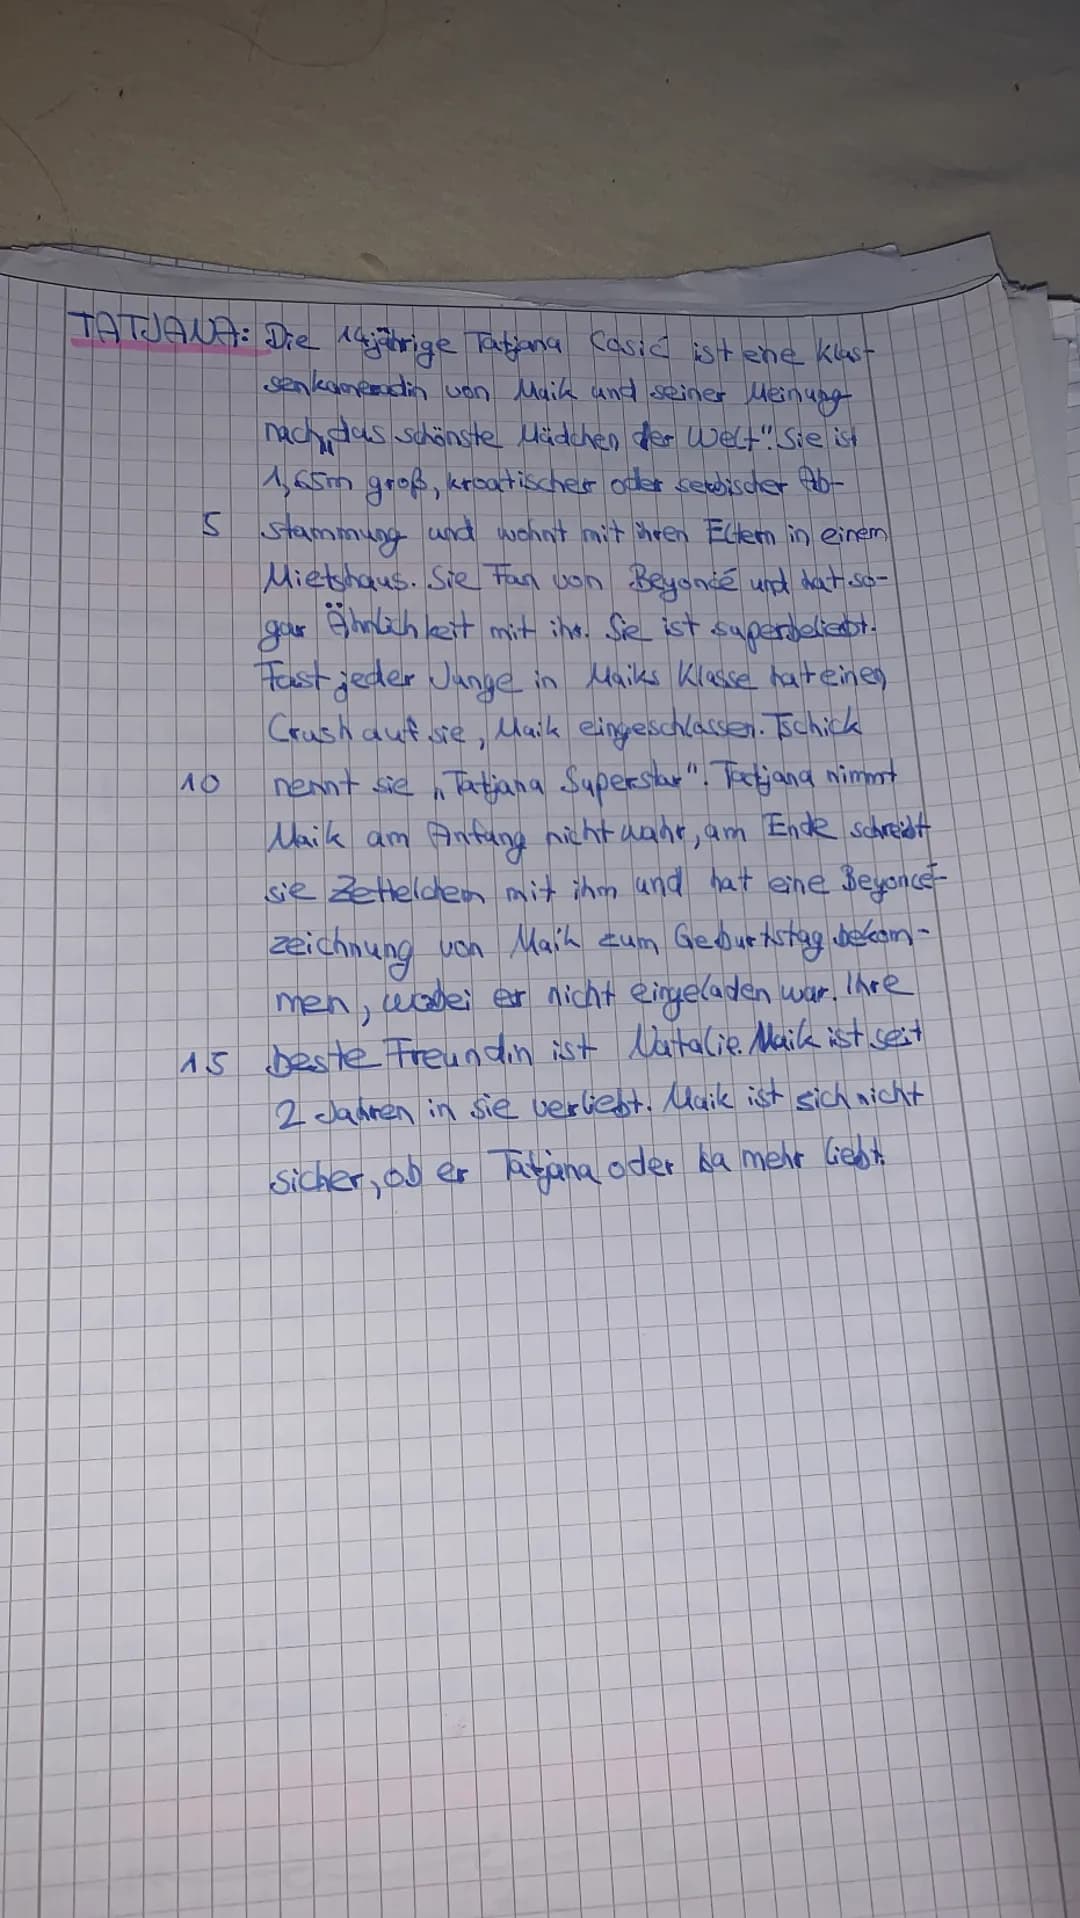 TATJANA: Die 14jährige Tatjana Cosic ist eine Klas-
senkameradin von Maik und seiner Meinung
nach „das schönste Mädchen der Welt". Sie ist
1,65m groß, kroatischer oder serbischer Ab-
5 stammung und wohnt mit ihren Eltern in einem
Mietshaus. Sie Fan von Beyoncé und hat so-
gar Ähnlichkeit mit ihr. Sie ist superbeliebt.
Fast jeder Junge in Maiks Klasse hat einen
Crush auf sie, Maik eingeschlossen. Tschick
10 nennt sie „Tatjana Superstar". Tatjana nimmt
Maik am Anfang nicht wahr, am Ende schreibt
sie Zettelchen mit ihm und hat eine Beyoncé-
zeichnung von Maik zum Geburtstag bekom-
men, wobei er nicht eingeladen war. Ihre
15 beste Freundin ist Natalie. Maik ist seit
2 Jahren in sie verliebt. Maik ist sich nicht
sicher, ob er Tatjana oder Isa mehr liebt.